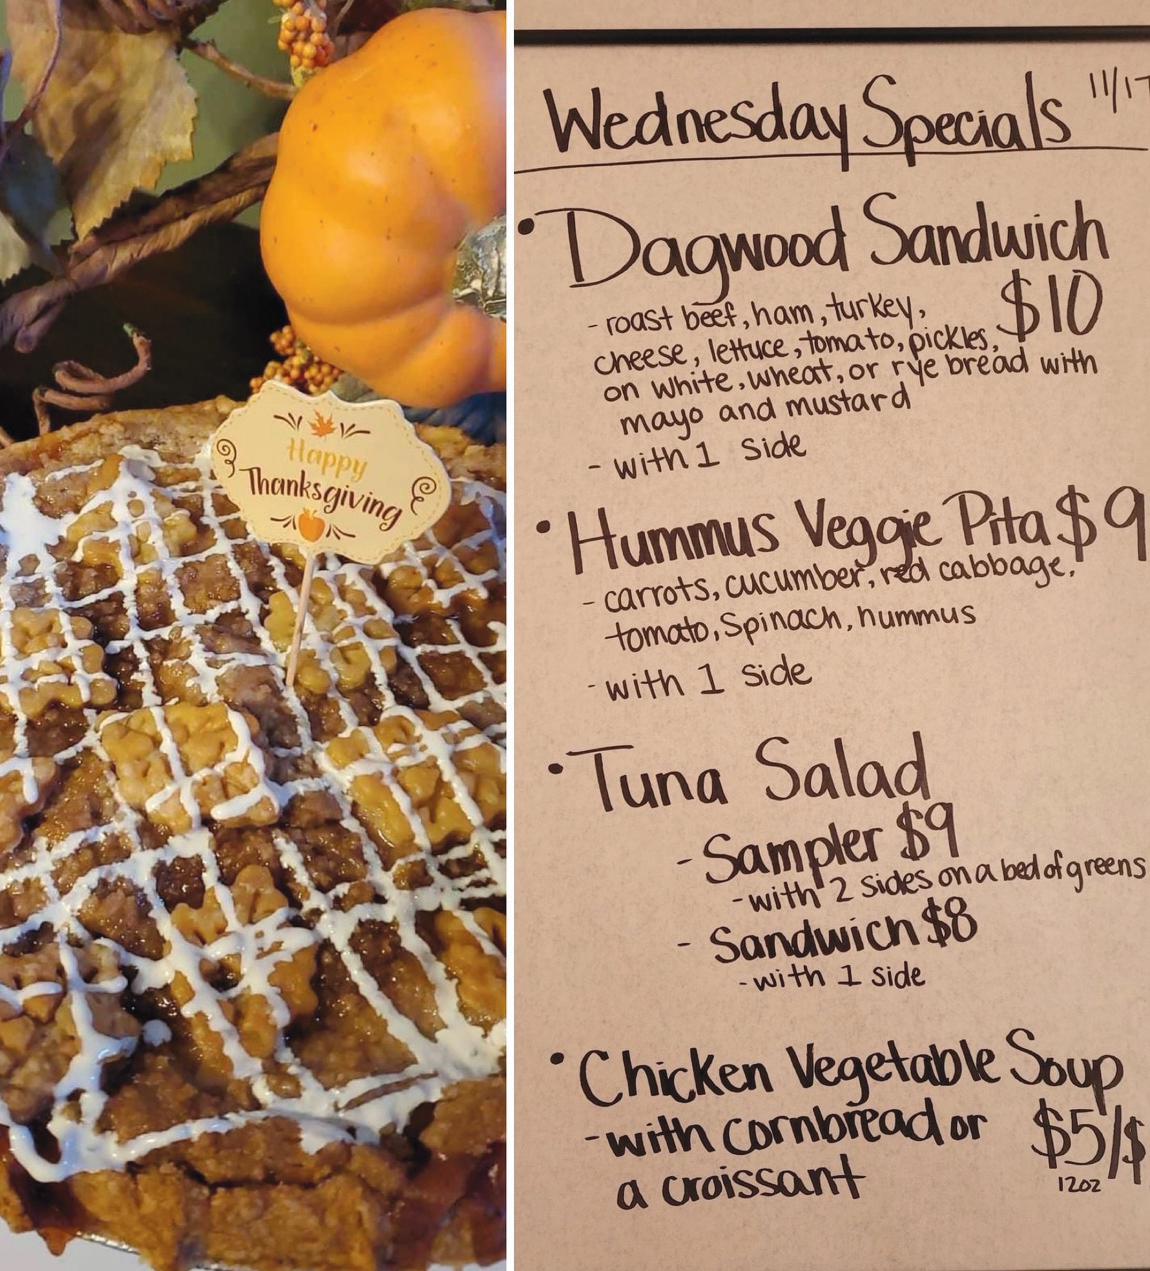 Happy
Thanksgiving
Wednesday Specials 11/17
• Dagwood Sandwich
- roast beef, ham, turkey, $10
cheese, lettuce, tomato, pickles,
on white, wheat, or rye bread with
mayo and mustard
- with 1 side
• Hummus Veggie Pita $9
- carrots, cucumber, red cabbage,
tomato, spinach, hummus
- with 1 side
• Tuna Salad
- Sampler $9
- with 2 sides on a bed of greens
- Sandwich $8
- with 1 side
• Chicken Vegetable Soup
- with cornbread or $5/$
a croissant 12oz